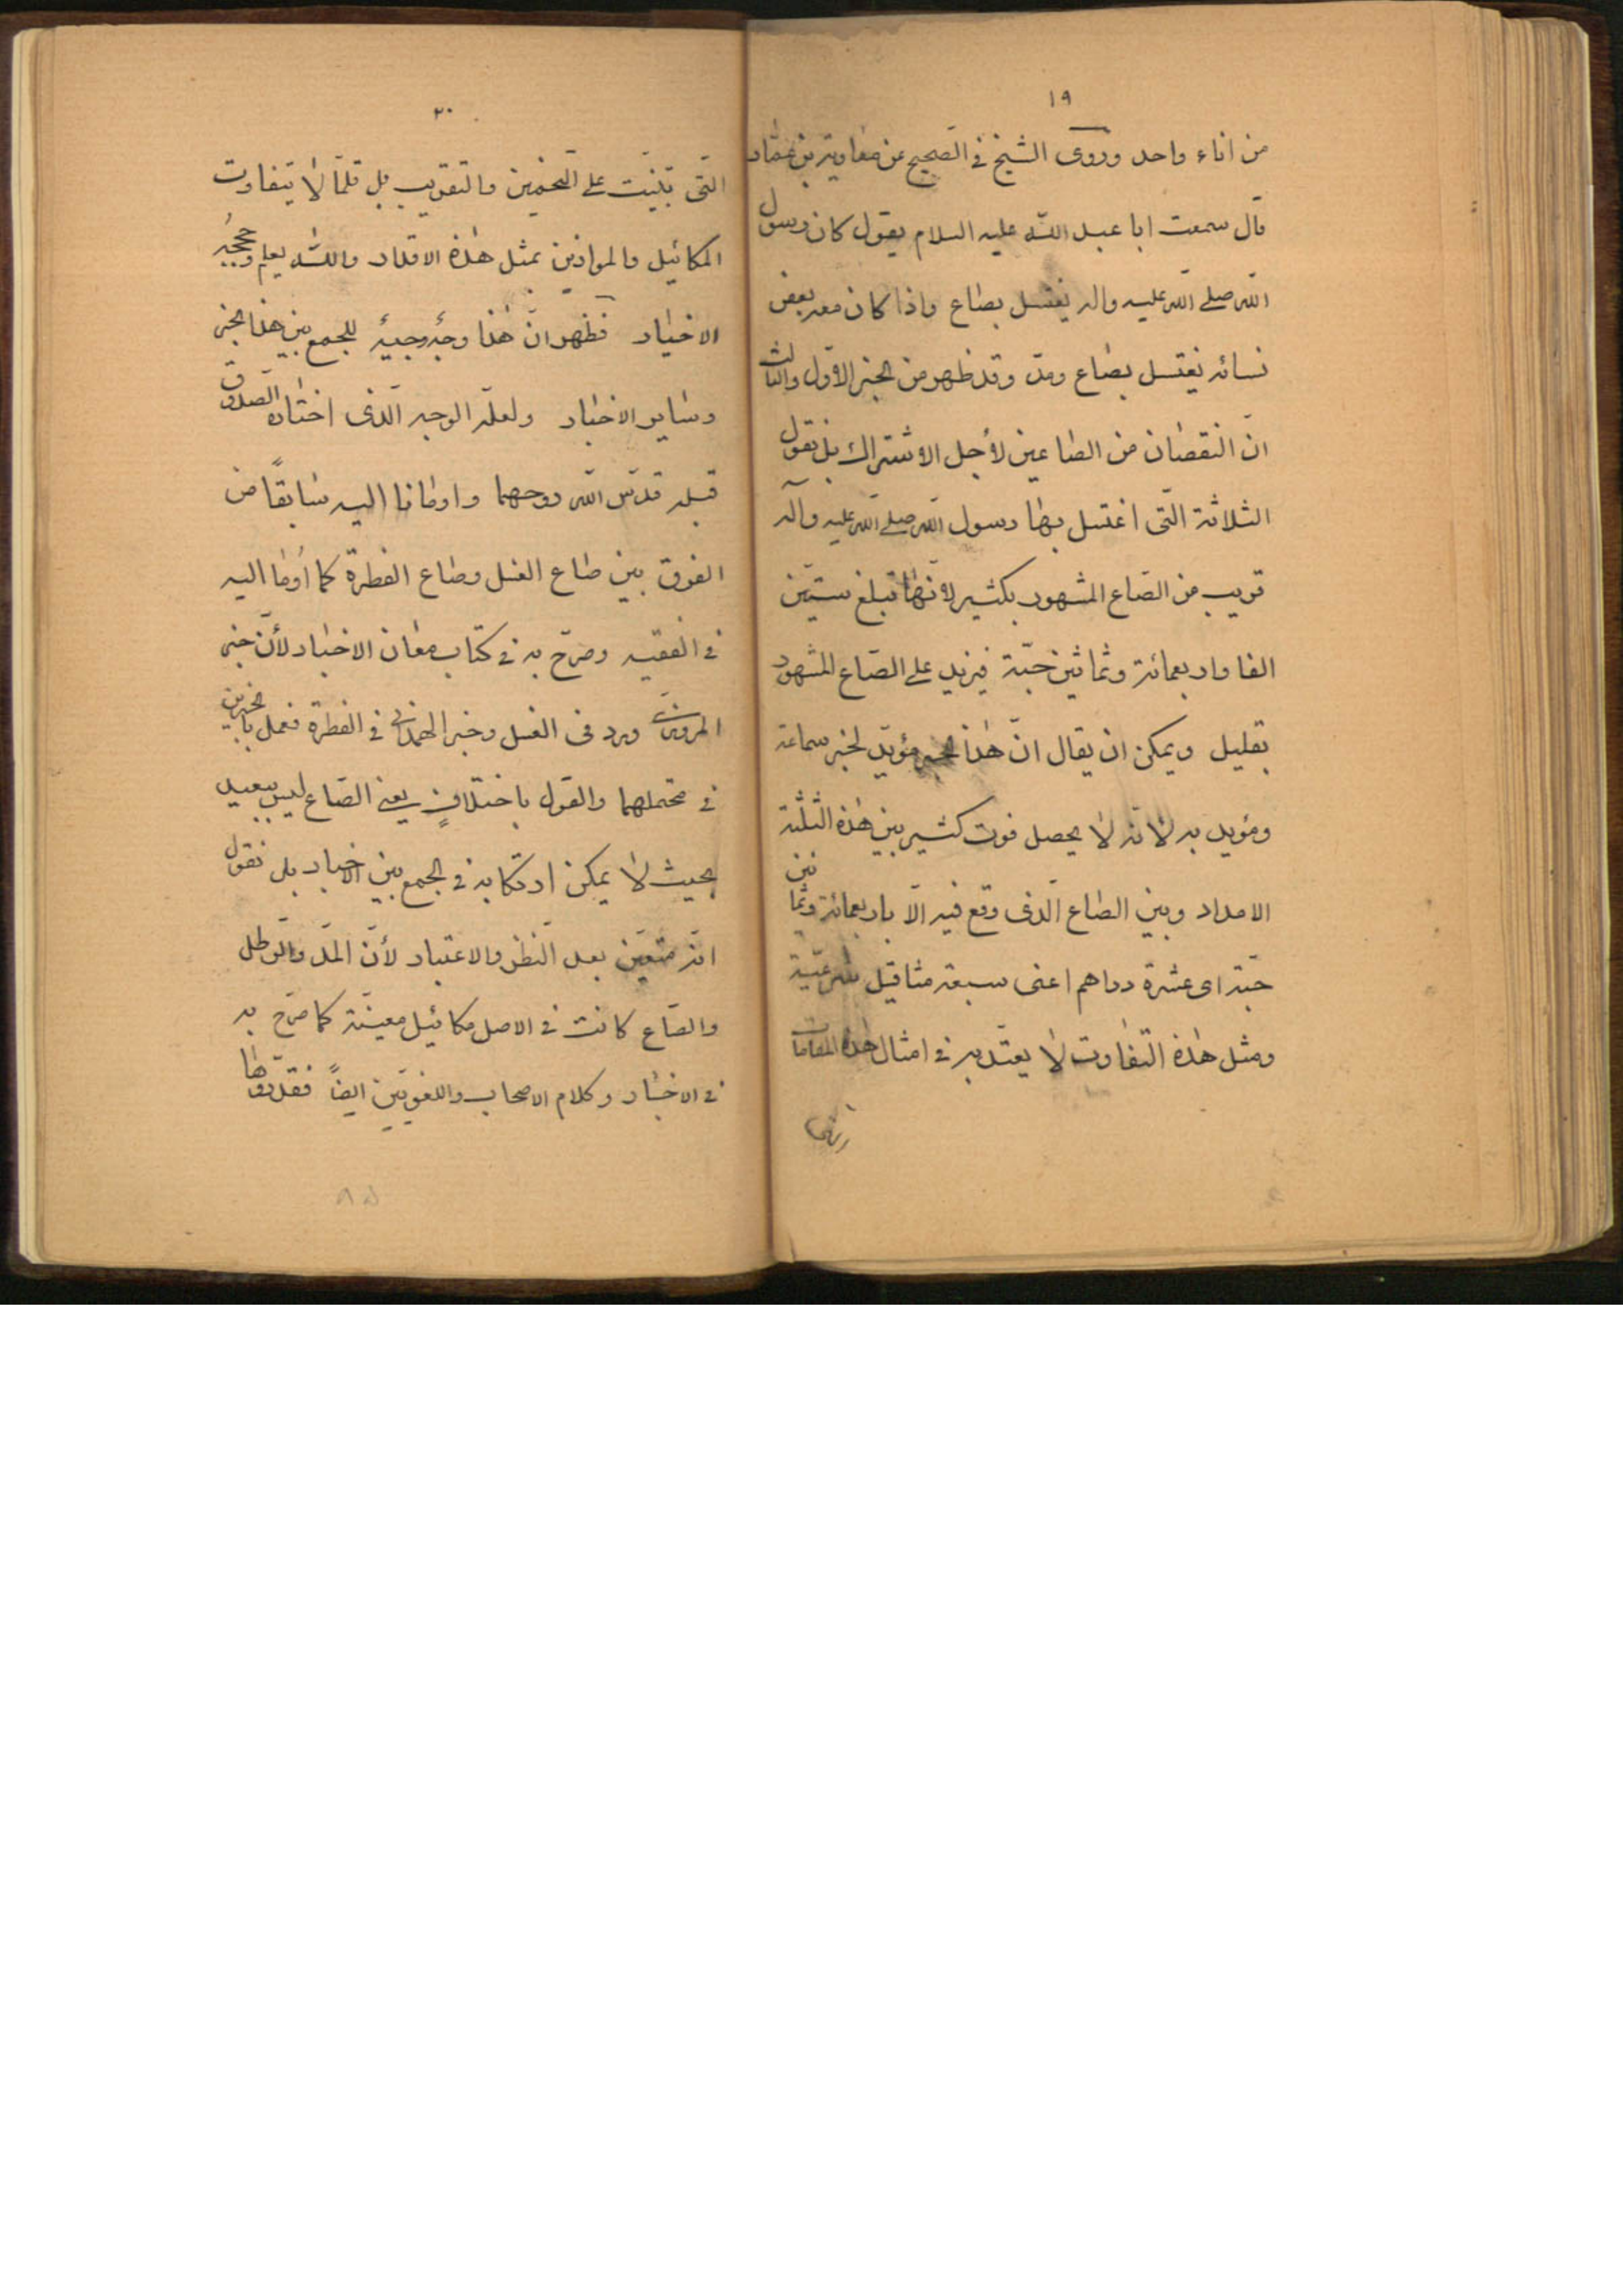 ١٩
من اناء واحد وروى الشيخ فى الصحيح عن معاوية بن عمّار
قال سمعت ابا عبد اللّه عليه السلام يقول كان رسول
اللّه صلى اللّه عليه واله يغتسل بصاع واذا كان معه بعض
نسائه يغتسل بصاع ومدّ وقد ظهر من الخبر الاوّل والثالث
انّ النقصان من الصاعين لأجل الاشتراك بل نقول
الثلاثة الّتى اغتسل بها رسول اللّه صلى اللّه عليه وآله
قريب من الصّاع المشهور بكثير لانّها تبلغ ستّين
الفا واربعمائة وثمانين حبّة فيزيد على الصّاع المشهور
بقليل ويمكن ان يقال انّ هذا الخبر مؤيّد لخبر سماعة
ومؤيد به لانه لا يحصل فوت كثير بين هذه الثلثة
الامداد وبين الصاع الّذى وقع فيه الّا باربعمائة وثمانين
حبّة اى عشرة دراهم اعنى سبعة مثاقيل شرعيّة
ومثل هذه التفاوت لا يعتدّ به فى امثال هذه المقامات
٢٠
التى بنيت على التخمين والتقريب بل قلّما لا يتفاوت
المكائيل والموازين بمثل هذه الاقدار واللّه يعلم وحججه
الاخيار فظهر انّ هذا وجه وجيه للجمع بين هذا الخبر
وساير الاخبار ولعلّه الوجه الّذى اختاره الصّدوق
قبله قدّس اللّه روحهما واومانا اليه سابقاً من
الفرق بين صاع الغسل وصاع الفطرة كما أومأ اليه
فى الفقيه وصرّح به فى كتاب معان الاخبار لأنّ خبر
المروزى ورد فى الغسل وخبر الهمدانى فى الفطرة فعمل بالخبرين
فى محتملهما والقول باختلاف يعنى الصّاع ليس ببعيد
بحيث لا يمكن ارتكابه فى الجمع بين الاخبار بل نقول
انّه متعيّن بعد النظر والاعتبار لأنّ المدّ والرّطل
والصّاع كانت فى الاصل مكائيل معينّة كما صرّح به
فى الاخبار وكلام الاصحاب واللغويّين ايضاً فقدّروها